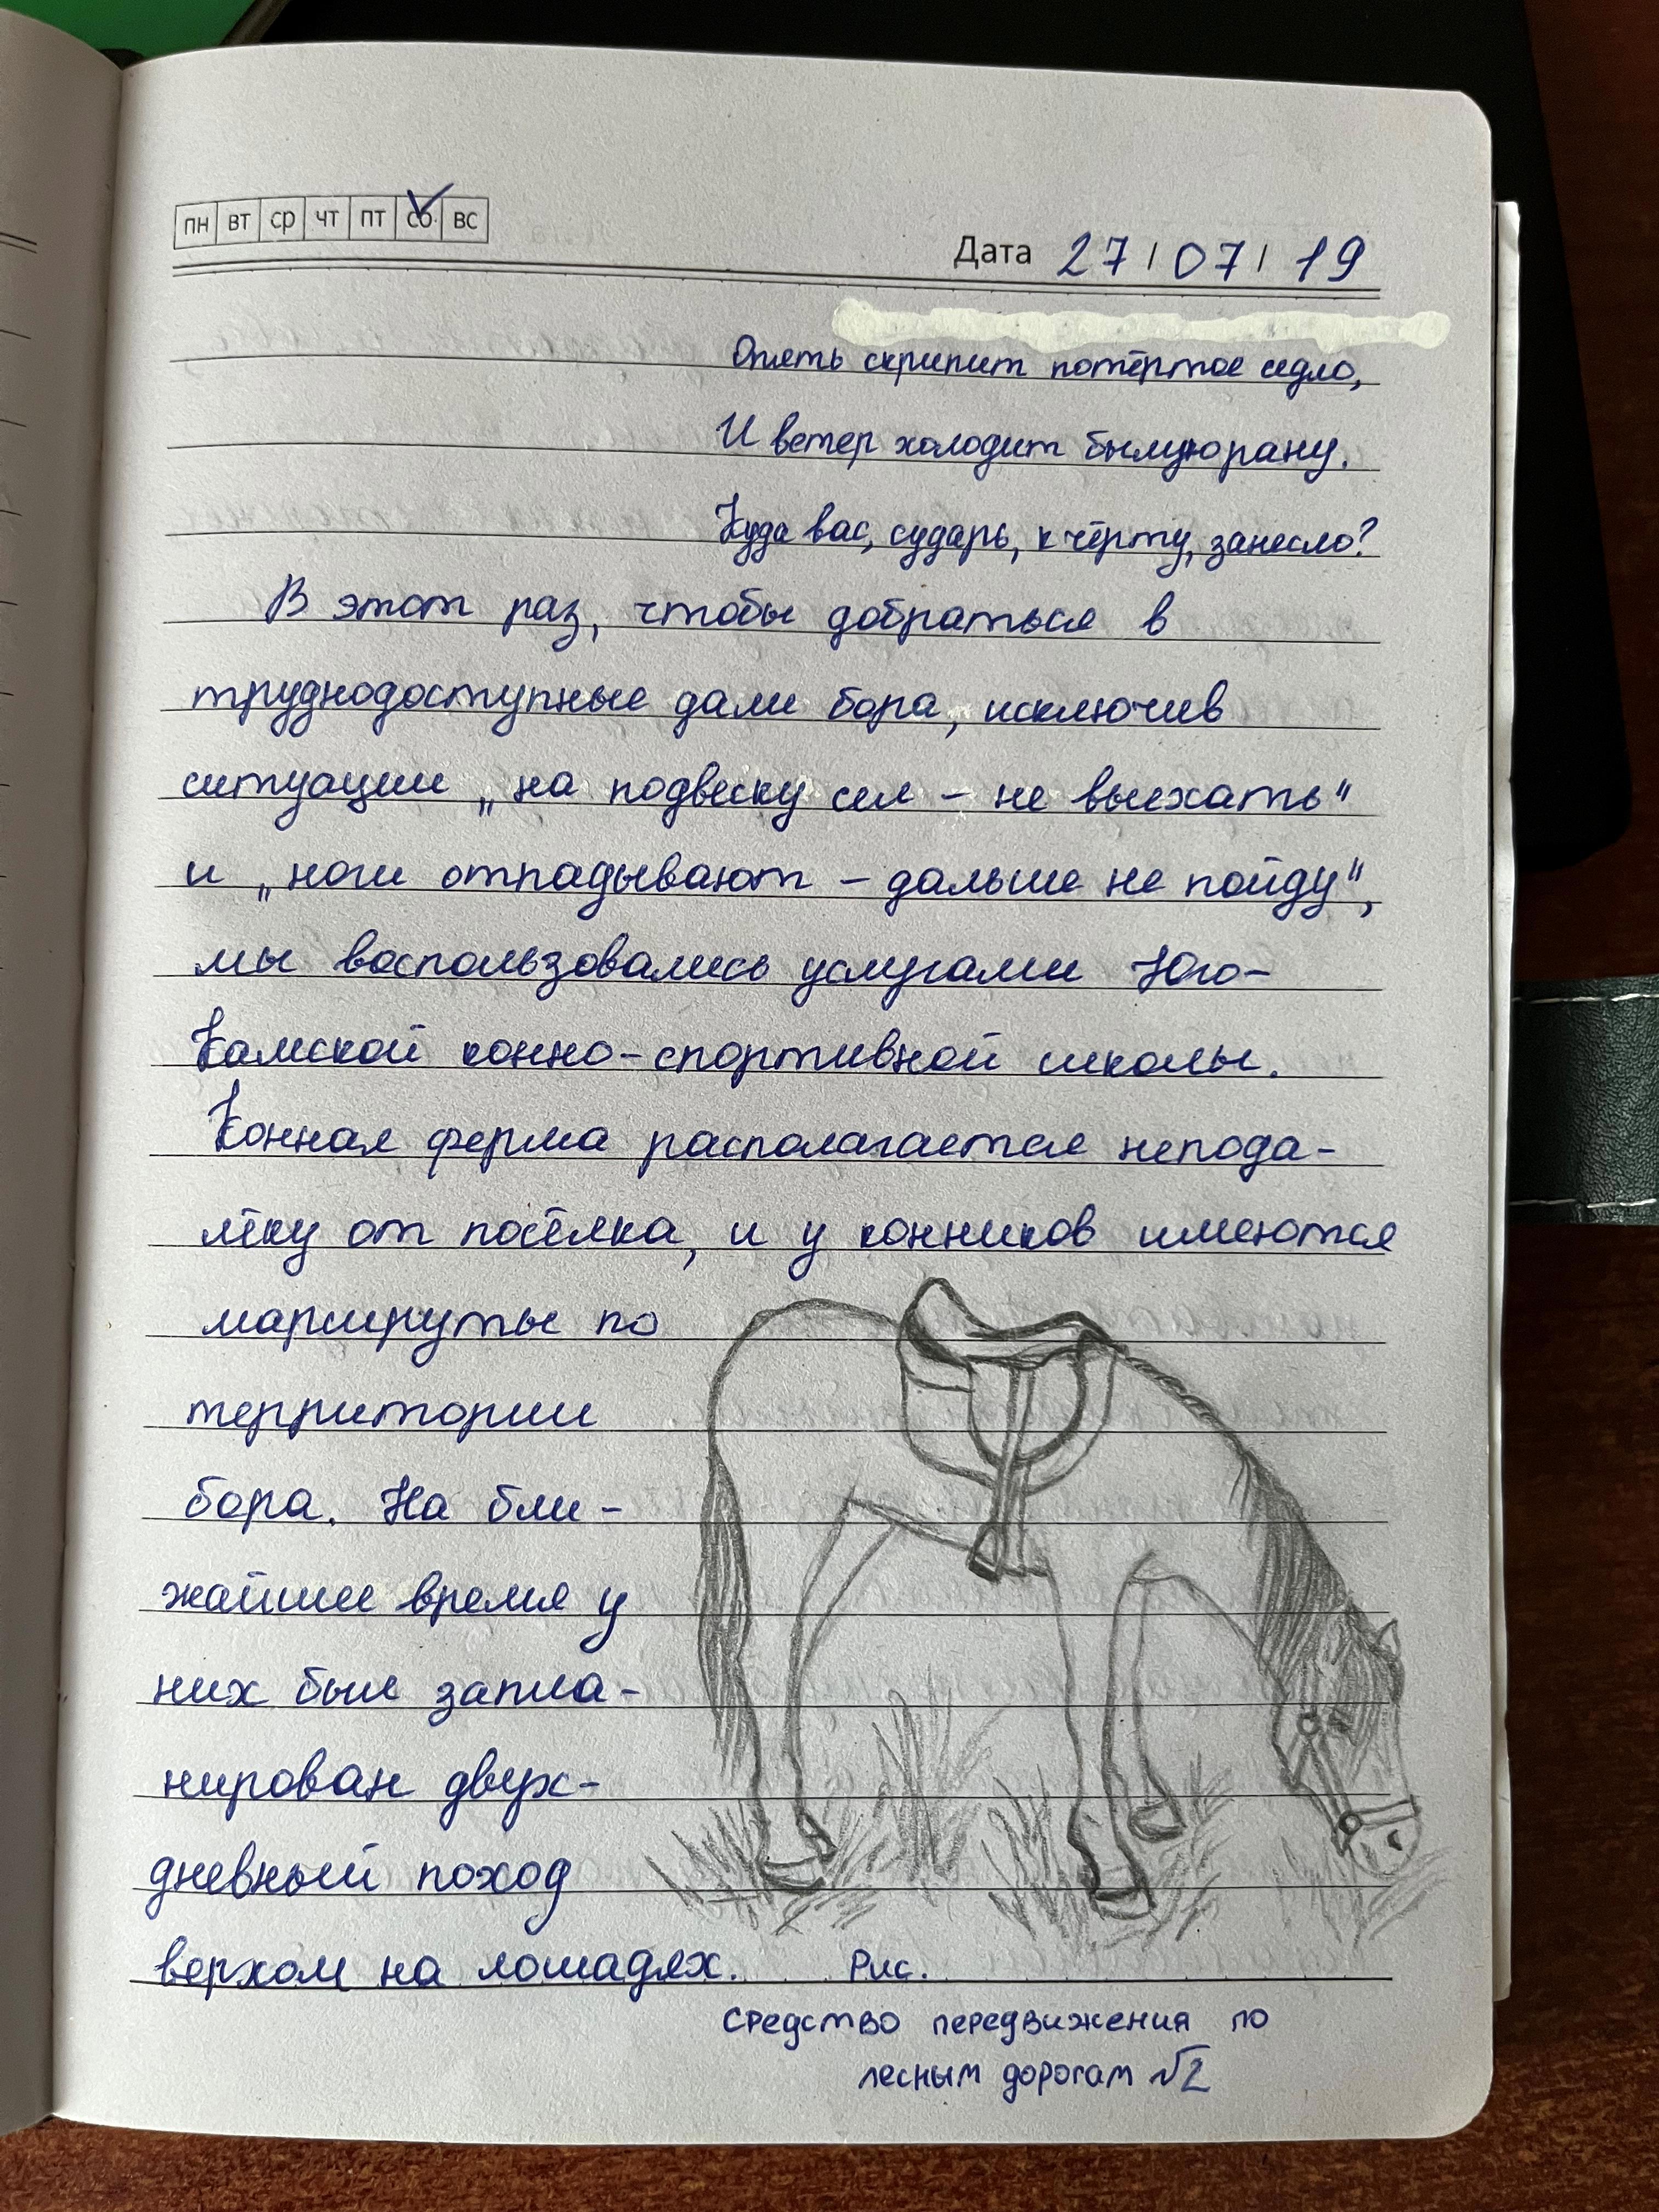 пн вт ср чт пт сб вс
Дата 27/07/19
Опять скрипит потёртое седло,
И ветер холодит былую рану.
Куда вас, сударь, к чёрту, занесло?
В этот раз, чтобы добраться в
труднодоступные дали бора, исключив
ситуации „на подвеску сел - не выехать“
и „ноги отпадывают - дальше не пойду“,
мы воспользовались услугами Юго-
Камской конно-спортивной школы.
Конная ферма располагается непода-
лёку от посёлка, и у конников имеются
маршруты по
территории
бора. На бли-
жайшее время у
них был запла-
нирован двух-
дневный поход
верхом на лошадях. Рис.
Средство передвижения по
лесным дорогам √2